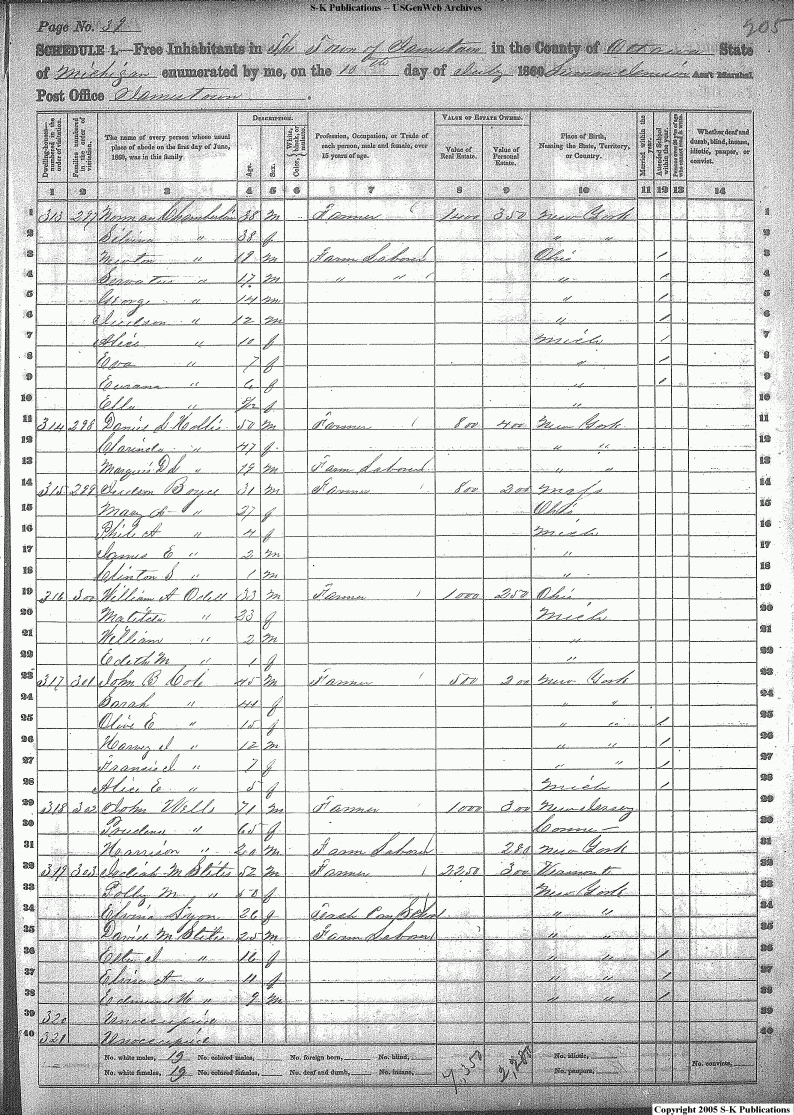 S-K Publications -- USGenWeb Archives
Page No. 39
205
SCHEDULE 1.—Free Inhabitants in The Town of Jamestown in the County of Ottawa State
of Michigan enumerated by me, on the 10th day of July 1860. Ass't Marshal
Post Office Jamestown.
DESCRIPTION. VALUE OF ESTATE OWNED.
Dwelling-houses numbered in the order of visitation. Families numbered in the order of visitation. The name of every person whose usual place of abode on the first day of June, 1860, was in this family Age. Sex. Color, White, black, or mulatto. Profession, Occupation, or Trade of each person, male and female, over 15 years of age. Value of Real Estate. Value of Personal Estate. Place of Birth, Naming the State, Territory, or Country. Married within the year. Attended School within the year. Whether deaf and dumb, blind, insane, idiotic, pauper, or convict.
1 2 3 4 5 6 7 8 9 10 11 12 13 14
1 313 297 Norman Chamberlin 38 m Farmer 1400 350 New York 1
2 " 38 f " " 2
3 Newton " 19 m Farm Laborer Ohio / 3
4 Servatus " 17 m " " " / 4
5 George " 14 m " / 5
6 Judson " 12 m " / 6
7 Alice " 10 f Mich / 7
8 Eva " 7 f " / 8
9 " 6 f " / 9
10 Ella " f " 10
11 314 298 Daniel L Hollis 50 m Farmer 800 400 New York 11
12 Clarinda " 47 f " " 12
13 " 19 m Farm Laborer " " 13
14 315 299 Judson Boyce 31 m Farmer 800 200 Mass 14
15 Mary " 27 f Ohio 15
16 A " 4 f Mich 16
17 James E " 2 m " 17
18 Clinton S " 1 m " 18
19 316 300 William A Odell 33 m Farmer 1000 250 Ohio 19
20 Matilda " 23 f Mich 20
21 William " 2 m " 21
22 Edith M " 1 f " 22
23 317 301 John B Cole 45 m Farmer 500 200 New York 23
24 Sarah " 41 f " " 24
25 Olive E " 15 f " " / 25
26 Harvey J " 12 m " " / 26
27 Francis J " 7 f " " / 27
28 Alice E " 5 f Mich / 28
29 318 302 John Wells 71 m Farmer 1000 300 New Jersey 29
30 " 65 f Conn 30
31 Harrison " 20 m Farm Laborer 280 New York 31
32 319 303 M Stiles 52 m Farmer 2250 300 Vermont 32
33 Polly M " 50 f New York 33
34 26 f Teach Com School " " 34
35 David M Stiles 25 m Farm Laborer " " 35
36 " 16 f " " / 36
37 A " 11 f " " / 37
38 Edmund H " 9 m " " / 38
39 320 Unoccupied 39
40 321 Unoccupied 40
No. white males, 19 No. colored males, No. foreign born, No. blind, No. idiotic, No. convicts,
No. white females, 19 No. colored females, No. deaf and dumb, No. insane, No. paupers,
2,280
Copyright 2005 S-K Publications